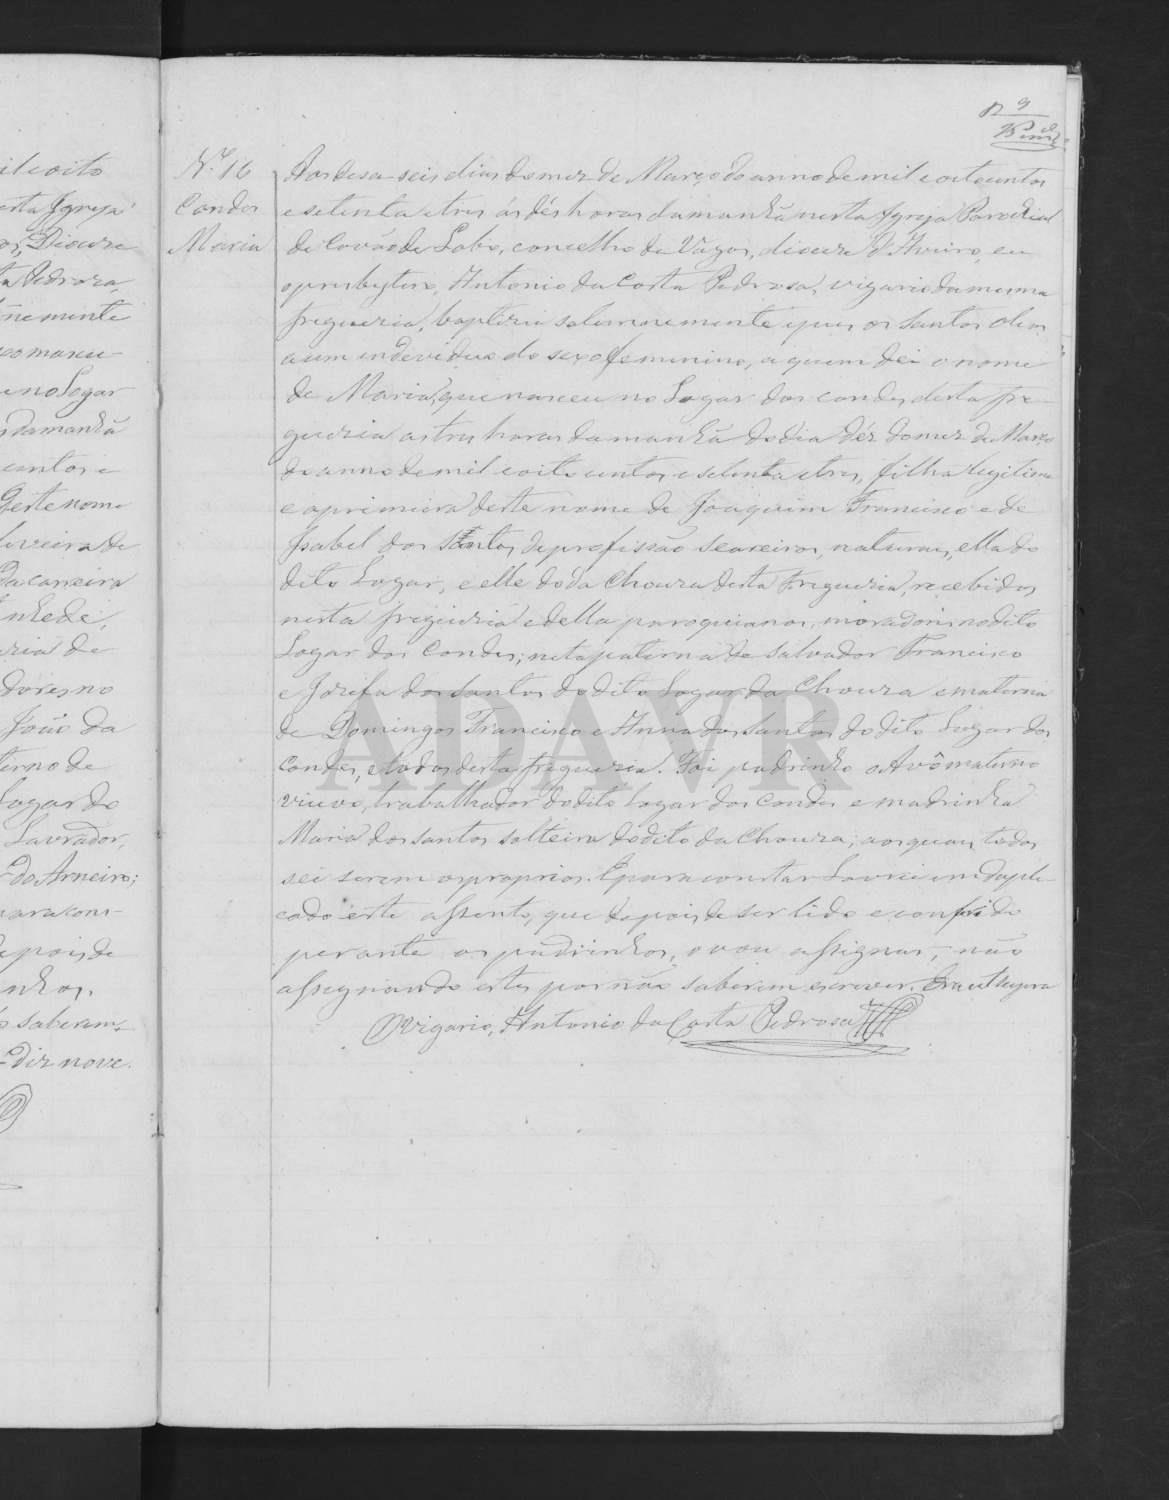 9
N.º 16
Condes
Maria
Aos desa seis dias do mez de Março do anno de mil e oitocentos
e setenta e tres ás dés horas da manhã nesta Igreja Parochial
de Covão de Lobo, concelho de Vagos, diocese d'Aveiro, eu
o presbytero, Antonio da Costa Pedrosa, vigario da mesma
freguezia, baptizei solemnemente e puz os Santos oleos
a um individuo do sexo femenino, a quem dei o nome
de Maria, que nasceu no Logar dos condes desta fre-
guezia as tres horas da manhã do dia déz do mez de Março
do anno de mil e oito centos e setenta e tres, filha legitima
e a primeira deste nome de Joaquim Francisco e de
Isabel dos Santos, de profissão seareiros, naturaes, ella do
dito Logar, e elle do da Choura desta Freguezia, recebidos
nesta freguezia e della paroquianos, moradores no dito
Logar dos Condes; neta paterna de Salvador Francisco
e Jozefa dos Santos do dito Logar da Choura e materna
de Domingos Francisco e Anna dos Santos do dito Logar dos
Condes, e todos desta freguezia. Foi padrinho o Avô materno
viuvo, trabalhador do dito Logar dos Condes e madrinha
Maria dos Santos solteira do dito da Choura; aos quaes todos
sei serem os proprios. E para constar Lavrei em dupli-
cado este assento, que depois de ser lido e conferido
perante os padrinhos, o vou assignar, não
assegnando estes por não saberem escrever. Era ut supra
O Vigario, Antonio da Costa Pedrosa
il e oito
esta Igreja
Diocese
Pedroza
nemente
nasceu
e no Logar
da manhã
centos e
deste nome
liveira de
da carreira
nhede,
zia de
dores no
João da
terno de
Logar do
Lavrador,
do Arneiro;
para cons-
depois de
nhos.
saberem
Diz nove.
ADAVR